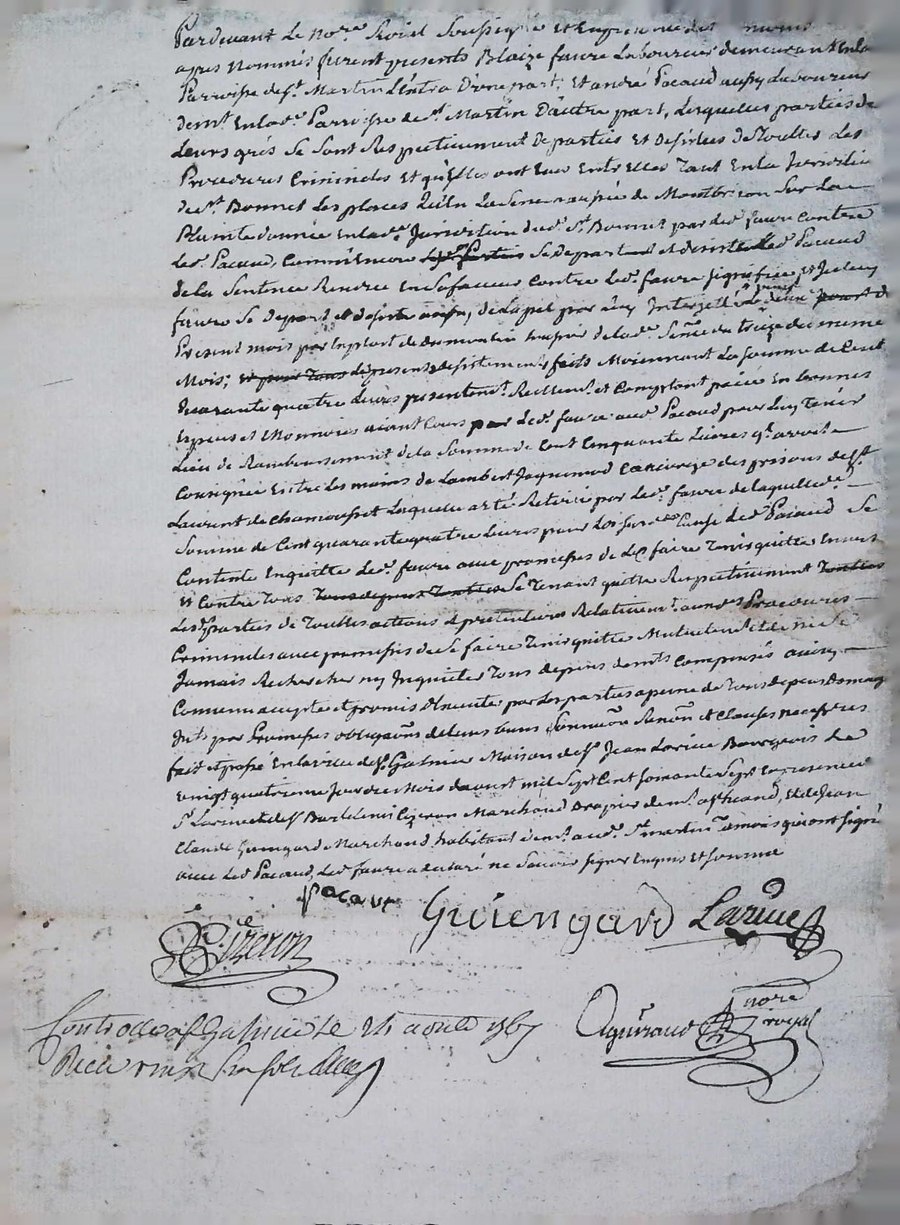 Pardevant Le no.re Roial Soussigné et En presence des
apres Nommés furent presents Blaize faure Laboureur demeurant En la
Parroisse de S.t Martin Lentra D'une part, et andré Pacaud aussy Laboureur
dem.t En lad.e Parroisse de S.t Martin D'autre part, Lesquelles parties de
Leurs grés Se Sont Respectivement Departies et Desistées de Touttes Les
Procedures Criminelles et qu'Elles ont Eues Entr'elles Tant En la Juridition
de S.t Bonnet Les places qu'En La Senechaussée de Montbrison Sur La
Plainte donnée En lad.e Juridition dud. S.t Bonnet par led.t faure Contre
Led.t Pacaud, Comme Encore Se depart et desiste Led.t Pacaud
de la Sentence Rendue En Sa faveur Contre Led.t faure Signifiée
faure Se depart et desiste aussy de L'apel par luy Interjetté
Present mois par Exploit de de lad.e Sen.ce du treize du meme
Mois; Les presents desistements faits Moiennant La Somme de Cent
Quarante quatre Livres presentem.t Réellem.t et Comptant paiée En bonnes
Especes et Monnoies aiant Cours par Led.t faure aud.t Pacaud pour Luy Tenir
Lieu de Remboursement de la Somme de Cent Cinquante Livres q.l avoit
Consignée Entre Les mains de Lambert Jaquemod Concierge des prisons de S.t
Laurent de Chamousset Laquelle a été Retirée par Led.t faure de laquelle d.e
Somme de Cent quarante quatre Livres pour Les Causes Led.t Pacaud Se
Contente En quitte Led.t faure avec promesses de L'En faire Tenir quitte Envers
et Contre Tous Se Tenant quitte Respectivement
Lesd. parties de Touttes actions et pretentions Relativem.t auxd.es Procedures
Criminelles avec promesses de Se faire Tenir quitte Mutuellem.t et de ne Se
Jamais Rechercher ny Inquieter Tous depens demts Compensés ainsy
Convenu accepté et promis Observer par Les parties a peine de Tous depens Domag
Ints par Promesses obligaõns de leurs biens Soumissõn Renonõn et Clauses necessres
fait et passé En la ville de S.t Galmier Maison de S.r Jean Larüe Bourgeois Le
vingt quatrieme Jour du Mois d'aoust mil Sept Cent Soixante Sept En presence
S.r Larüe et de S.r Barthelemi Cizeron Marchand Drapier dem.t and, et de Jean
Claude Guingard Marchand habitant dem.t aud.t S.t martin Temoins qui ont Signé
avec Led.t Pacaud, Led.t faure a declaré ne Savoir Signer Enquis et Sommé
Pacaut
Guiengard Larüe
B. Cizeron
nore
royal
Controllé a S.t Galmier le 24 aoust 1767
Recu